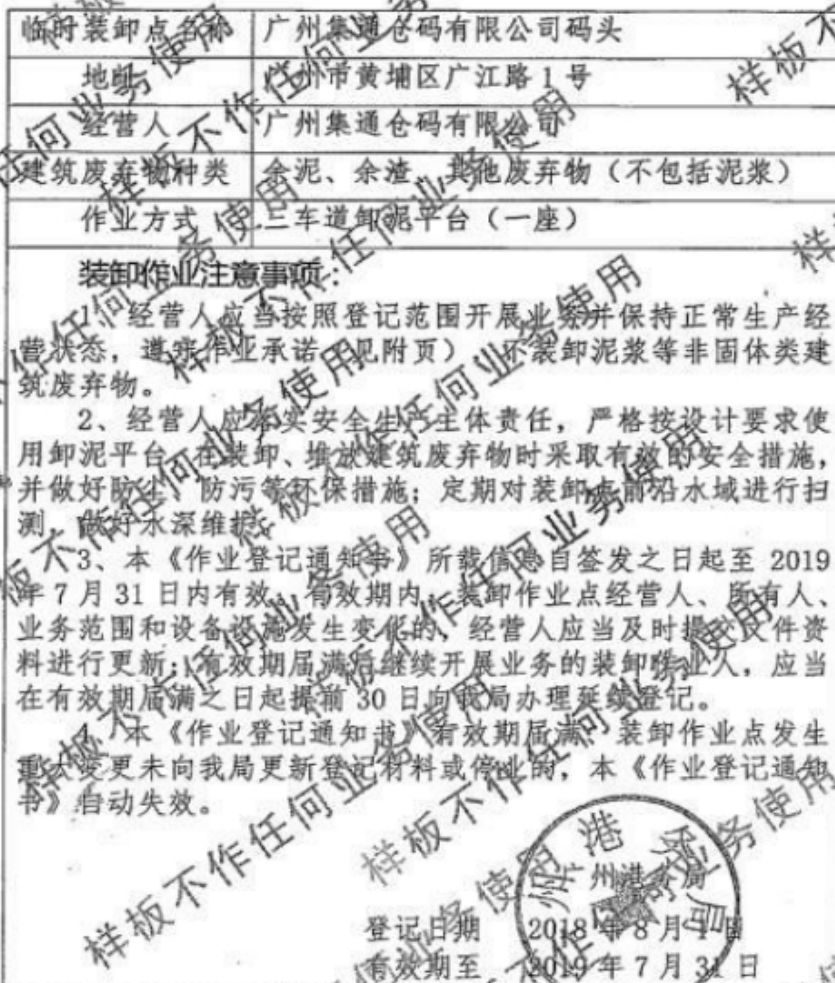 临时装卸点名称 广州集通仓码有限公司码头
地址 广州市黄埔区广江路1号
经营人 广州集通仓码有限公司
建筑废弃物种类 余泥、余渣、其他废弃物（不包括泥浆）
作业方式 三车道卸泥平台（一座）
装卸作业注意事项：
1、经营人应当按照登记范围开展业务并保持正常生产经
营状态，遵守作业承诺（见附页），不装卸泥浆等非固体类建
筑废弃物。
2、经营人应落实安全生产主体责任，严格按设计要求使
用卸泥平台，在装卸、堆放建筑废弃物时采取有效的安全措施，
并做好防尘、防污等环保措施；定期对装卸点前沿水域进行扫
测，做好水深维护。
3、本《作业登记通知书》所载信息自签发之日起至 2019
年 7 月 31 日内有效。有效期内，装卸作业点经营人、所有人、
业务范围和设备设施发生变化的，经营人应当及时提交文件资
料进行更新；有效期届满后继续开展业务的装卸作业人，应当
在有效期届满之日起提前 30 日向我局办理延续登记。
4、本《作业登记通知书》有效期届满、装卸作业点发生
重大变更未向我局更新登记材料或停业的，本《作业登记通知
书》自动失效。
广州港务局
登记日期 2018 年 8 月 1 日
有效期至 2019 年 7 月 31 日
样板不作任何业务使用